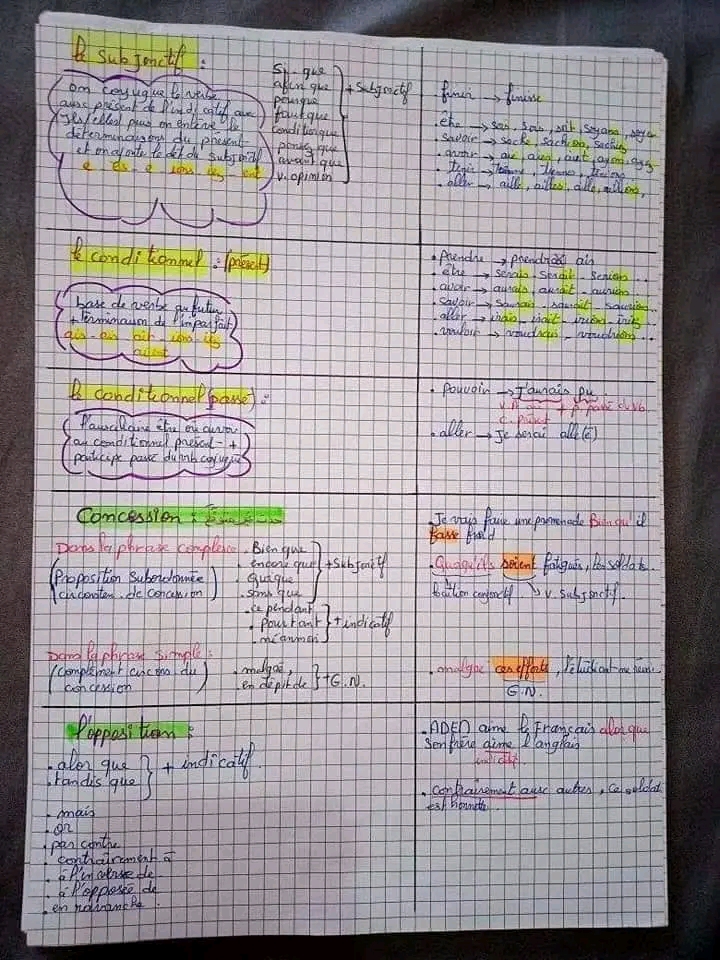 le Subjonctif :
on conjugue le verbe
aux présent de l'indicatif avec
ils/elles puis on enlève le
déterminaison du présent
et on ajoute le dét du Subjonctif
e - es - e - ions - iez - ent
Si - que
afin que
pour que
faut que
condition que
pensez que
avant que
v. opinion
+ Subjonctif
finir → finisse
. être → sois, sois, soit, soyons, soyez
. savoir → sache, sachions, sachiez
. avoir → aie, aies, ait, ayons, ayez
. tenir → tienne, tiennes, tenions,
. aller → aille, ailles, aille, allions,
le conditionnel : (présent)
base de verbe au futur
+ terminaison de l'imparfait
ais - ais - ait - ions - iez
aient
. Prendre → prendrais ais
. être → serais - serait - serions ...
. avoir → aurais, aurait - aurions
. savoir → saurais - saurait - saurions ...
. aller → irais, irait - irions, iriez ...
. vouloir → voudrais, voudrions ...
le conditionnel (passé) :
l'auxiliaire être ou avoir
au conditionnel présent +
participe passé du vrb conjugué
. pouvoir → J'aurais pu
+ p. passé du vb.
c. présent
. aller → Je serai allé(e)
Concession :
Dans la phrase complexe
(Proposition Subordonnée
circonsten. de concession)
. Bien que
. encore que
. Quoique
. sans que
+ Subjonctif
. ce pendant
. pourtant
. néanmoi
+ indicatif
Je vais faire une promenade Bien qu'il
fasse froid
. Quoiqu'ils soient fatigués, les soldats..
v. Subjonctif.
Dans la phrase simple :
(complément circons du
concession)
. malgré,
. en dépit de
+ G.N.
. malgré ces efforts, l'étudiant ne réussi.
G.N.
l'opposition :
. alor que
. tandis que
+ indicatif
. mais
. or
. par contre
. contrairement à
. à l'inverse de
. à l'opposée de
. en revanche.
. ADEM aime le Français alor que
Son frère aime l'anglais
indicatif.
. contrairement aux autres, ce soldat
est honnête.